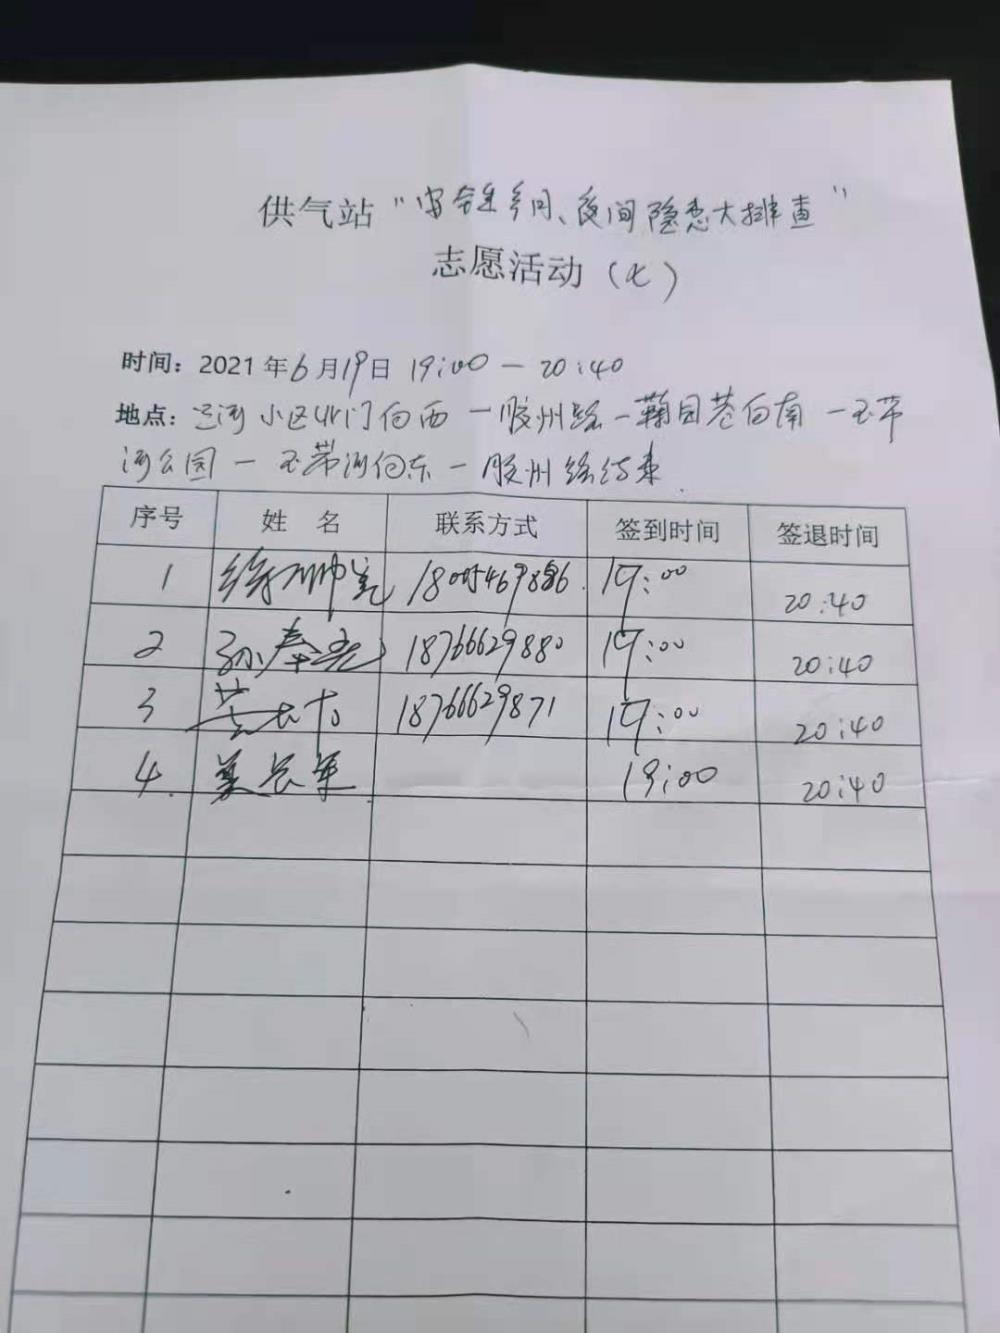 供气站“安全生产月、夜间隐患大排查”
志愿活动(七)
时间：2021年6月19日 19:00—20:40
地点： 小区北门向西—胶州路—鞠园巷向南—玉带
河公园—玉带河向东—胶州路结束
序号 姓 名 联系方式 签到时间 签退时间
1 徐帅 19:00 20:40
2 孙奉亮 18766629880 19:00 20:40
3 18766629871 19:00 20:40
4. 姜长军 19:00 20:40